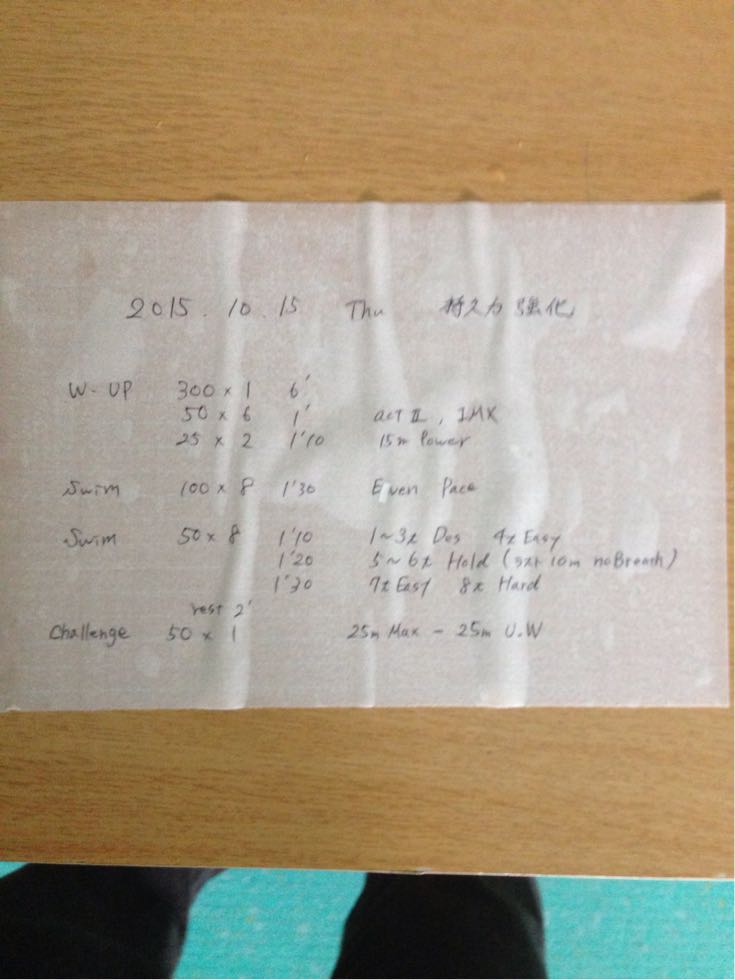 2015.10.15 Thu 持久力強化
W-UP 300 × 1 6'
50 × 6 1' act II, IMX
25 × 2 1'10 15m Power
Swim 100 × 8 1'30 Even Pace
Swim 50 × 8 1'10 1~3t Des 4t Easy
1'20 5~6t Hold ( 10m noBreath)
1'30 7t Easy 8t Hard
rest 2'
Challenge 50 × 1 25m Max - 25m U.W